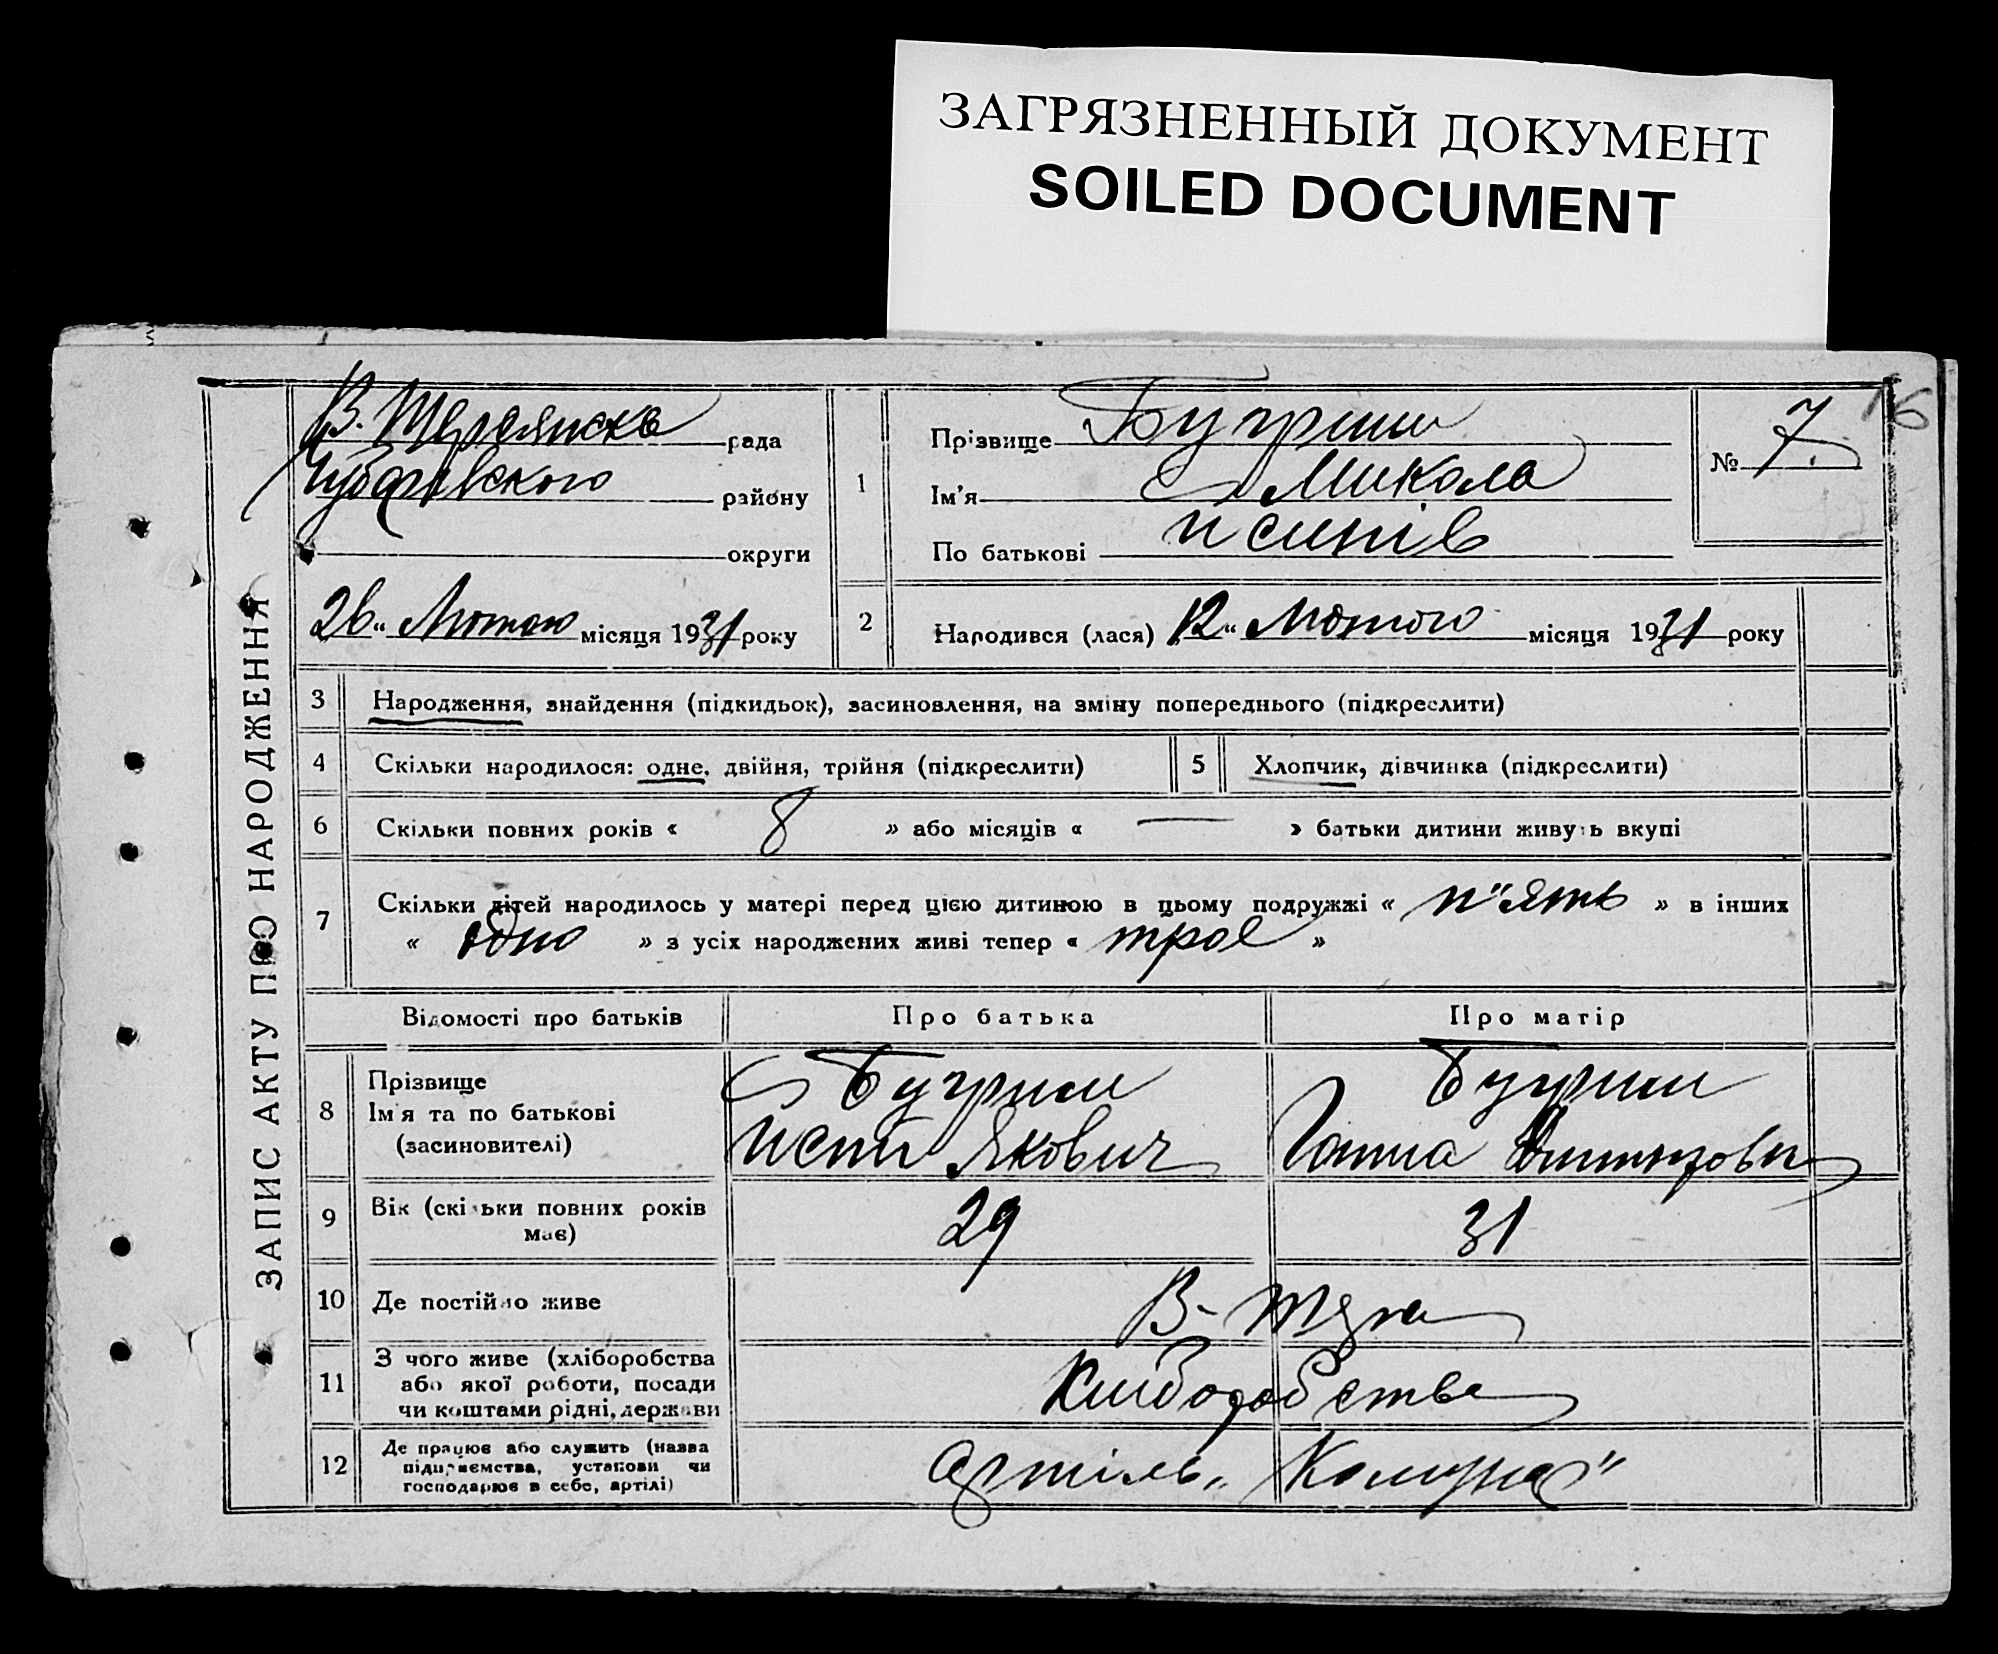 ЗАГРЯЗНЕННЫЙ ДОКУМЕНТ
SOILED DOCUMENT
16
рада
району
округи
26 „ Лютого місяця 1931 року
ЗАПИС АКТУ ПРО НАРОДЖЕННЯ
1
Прізвище
Ім'я Микола
По батькові
№ 7.
2
Народився (лася) 12 „ Лютого місяця 1931 року
3 Народження, знайдення (підкидьок), засиновлення, на зміну попереднього (підкреслити)
4 Скільки народилося: одне, двійня, трійня (підкреслити)
5 Хлопчик, дівчинка (підкреслити)
6 Скільки повних років « 8 » або місяців « — » батьки дитини живуть вкупі
7 Скільки дітей народилось у матері перед цією дитиною в цьому подружжі « п"ять » в інших
« одно » з усіх народжених живі тепер « троє »
Відомості про батьків
Про батька
Про матір
8
Прізвище
Ім'я та по батькові
(засиновителі)
Якович
Ганна
9
Вік (скільки повних років
має)
29
31
10 Де постійно живе
11
З чого живе (хліборобства
або якої роботи, посади
чи коштами рідні, держави
12
Де працює або служить (назва
підприємства, установи чи
господарює в себе, артілі)
Артіль „ Комуна "